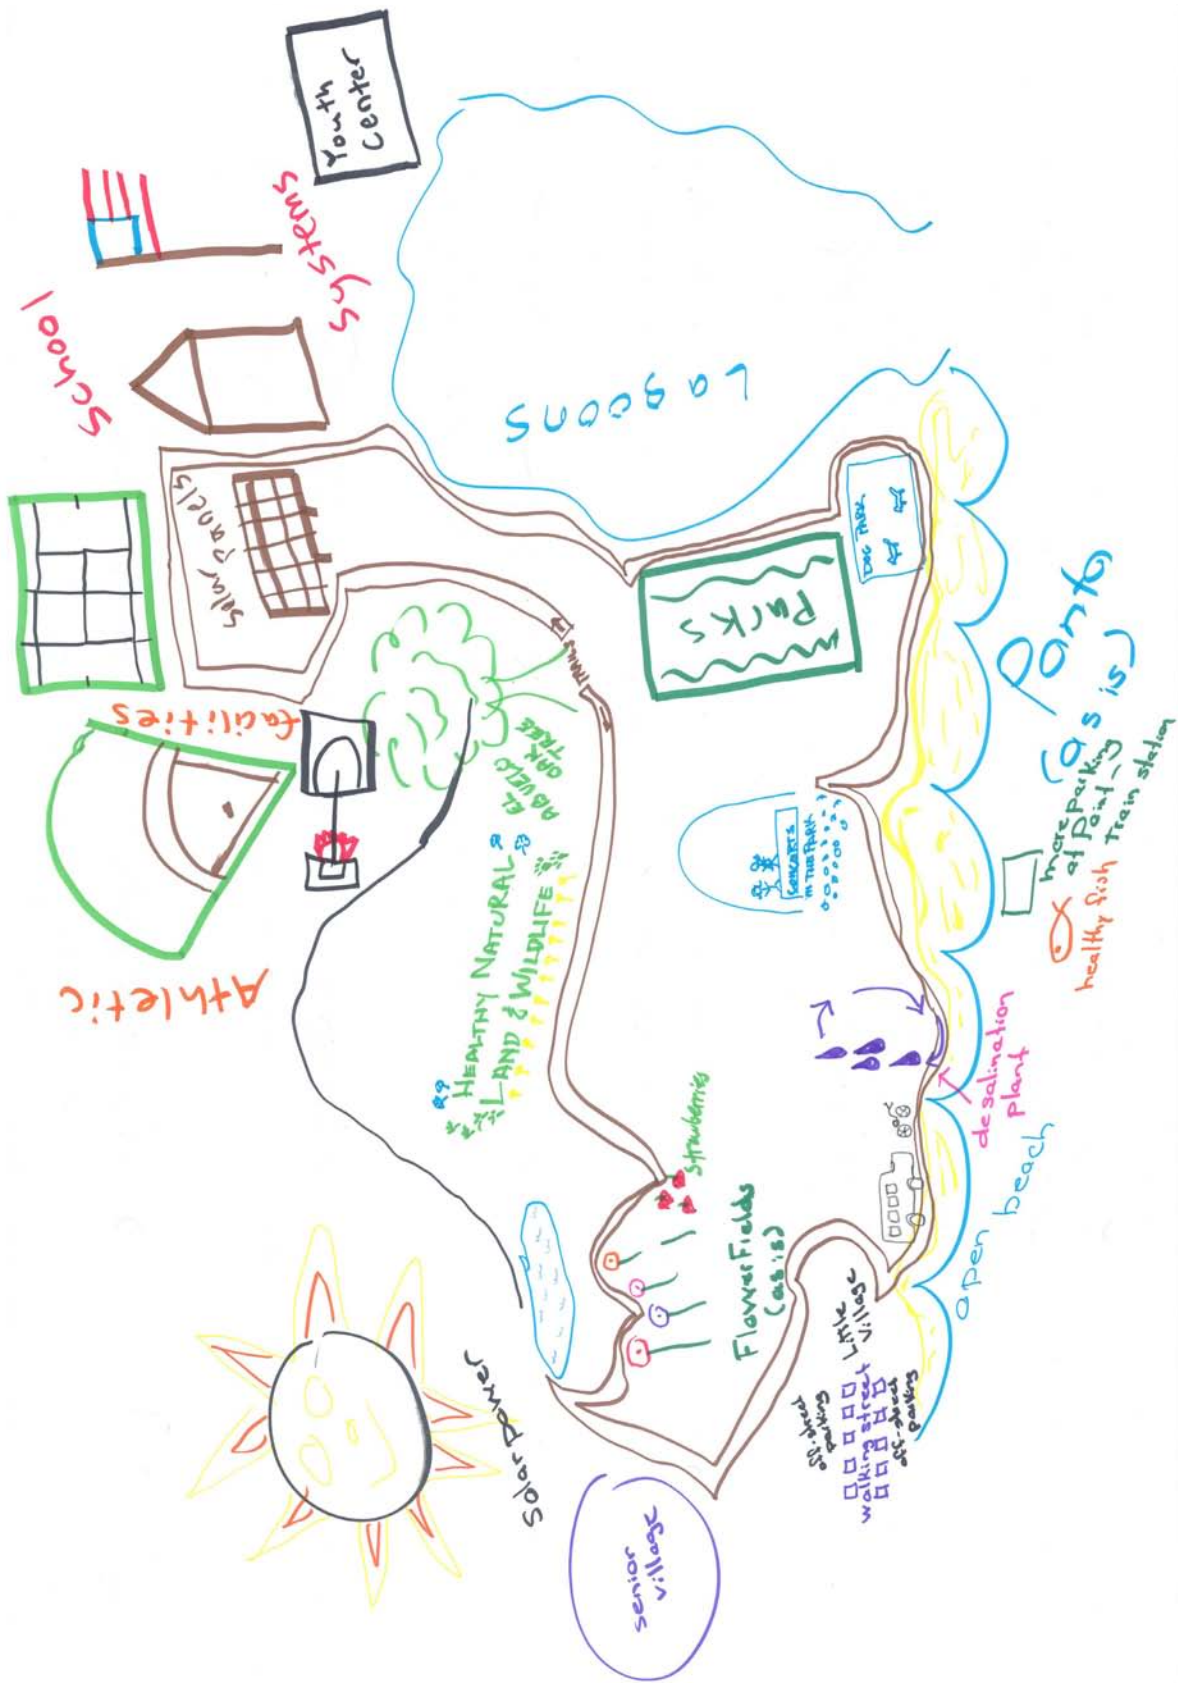 Youth
Center
School
Systems
Solar Panels
Lagoons
DOG PARK
Parks
Ponto
(as is)
more parking
at Point
train station
healthy fish
facilities
Athletic
TRAILS
EL
ABUELO
OAK
TREE
HEALTHY NATURAL
LAND & WILDLIFE
CONCERTS
IN THE PARK
desalination
plant
open beach
strawberries
Flower Fields
(as is)
Little
Village
off-street
parking
walking street
off-street
parking
Solar Power
senior
village